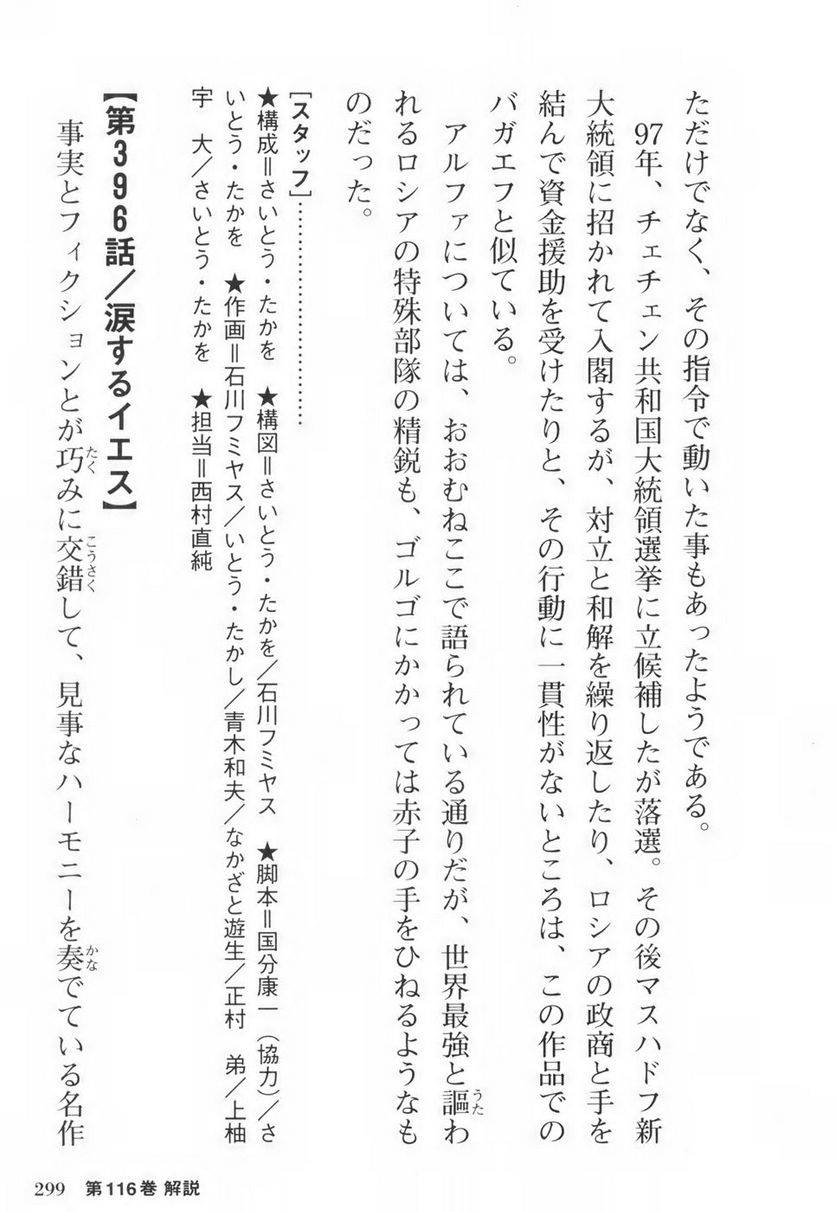 ただけでなく、その指令で動いた事もあったようである。
97年、チェチェン共和国大統領選挙に立候補したが落選。その後マスハドフ新
大統領に招かれて入閣するが、対立と和解を繰り返したり、ロシアの政商と手を
結んで資金援助を受けたりと、その行動に一貫性がないところは、この作品での
バガエフと似ている。
アルファについては、おおむねここで語られている通りだが、世界最強と謳わ
れるロシアの特殊部隊の精鋭も、ゴルゴにかかっては赤子の手をひねるようなも
のだった。
[スタッフ]……………………………
★構成＝さいとう・たかを ★構図＝さいとう・たかを／石川フミヤス ★脚本＝国分康一（協力）／さ
いとう・たかを ★作画＝石川フミヤス／いとう・たかし／青木和夫／なかざと遊生／正村 弟／上柚
宇 大／さいとう・たかを ★担当＝西村直純
【第396話／涙するイエス】
事実とフィクションとが巧みに交錯して、見事なハーモニーを奏でている名作
299 第116巻 解説